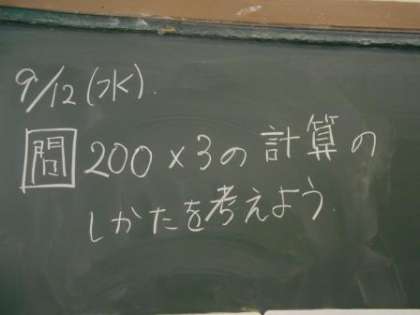 9/12(水).
問 200×3の計算の
しかたを考えよう.